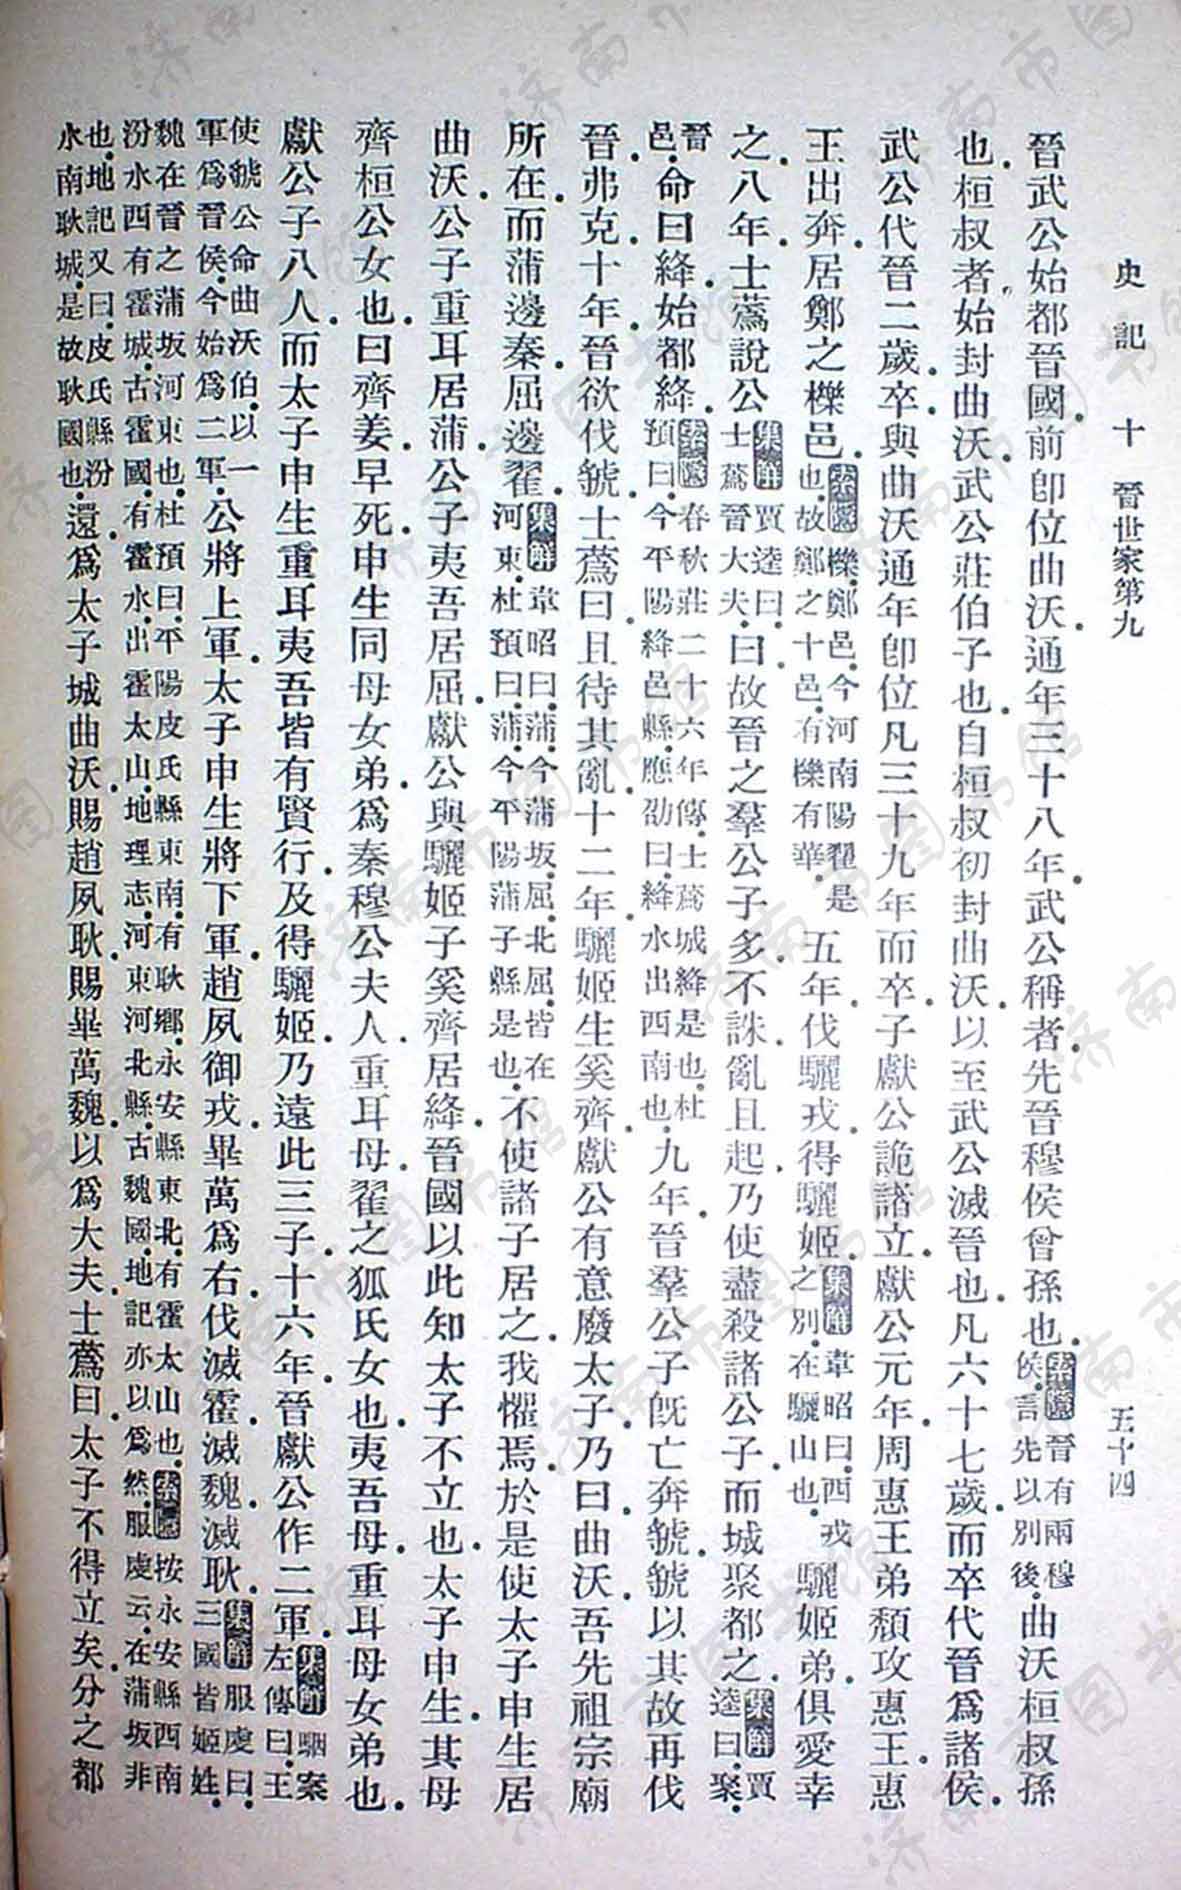 史記 十 晉世家第九 五十四
晉武公始都晉國．前卽位曲沃．通年三十八年．武公稱者．先晉穆侯曾孫也．索隱晉有兩穆侯．言先以別後．曲沃桓叔孫
也．桓叔者．始封曲沃．武公莊伯子也．自桓叔初封曲沃．以至武公滅晉也．凡六十七歲．而卒代晉爲諸侯．
武公代晉二歲．卒．與曲沃通年．卽位凡三十九年而卒．子獻公詭諸立．獻公元年．周惠王弟頹攻惠王．惠
王出奔．居鄭之櫟邑．索隱櫟．鄭邑．今河南陽翟是也．故鄭之十邑．有櫟有華．五年．伐驪戎．得驪姬．集解韋昭曰．西戎之別．在驪山也．驪姬弟．俱愛幸
之．八年．士蔿說公．集解賈逵曰．士蔿．晉大夫．曰．故晉之羣公子多．不誅．亂且起．乃使盡殺諸公子．而城聚都之．集解賈逵曰．聚．
晉邑．命曰絳．始都絳．索隱春秋莊二十六年傳．士蔿城絳是也．杜預曰．今平陽絳邑縣．應劭曰．絳水出西南也．九年．晉羣公子旣亡奔虢．虢以其故再伐
晉．弗克．十年．晉欲伐虢．士蔿曰．且待其亂．十二年．驪姬生奚齊．獻公有意廢太子．乃曰．曲沃吾先祖宗廟
所在．而蒲邊秦．屈邊翟．集解韋昭曰．蒲．今蒲坂．屈．北屈．皆在河東．杜預曰．蒲．今平陽蒲子縣是也．不使諸子居之．我懼焉．於是使太子申生居
曲沃．公子重耳居蒲．公子夷吾居屈．獻公與驪姬子奚齊居絳．晉國以此知太子不立也．太子申生．其母
齊桓公女也．曰齊姜．早死．申生同母女弟．爲秦穆公夫人．重耳母．翟之狐氏女也．夷吾母．重耳母女弟也．
獻公子八人．而太子申生重耳夷吾皆有賢行．及得驪姬．乃遠此三子．十六年．晉獻公作二軍．集解駰案左傳曰．王
使虢公命曲沃伯．以一軍爲晉侯．今始爲二軍．公將上軍．太子申生將下軍．趙夙御戎．畢萬爲右．伐滅霍．滅魏．滅耿．集解服虔曰．三國皆姬姓．
魏在晉之蒲坂河東也．杜預曰．平陽皮氏縣東南有耿鄉．永安縣東北有霍太山也．索隱按永安縣西南汾水西有霍城．古霍國．有霍水．出霍太山．地理志．河東河北縣．古魏國．地記亦以爲然．服虔云．在蒲坂．非
也．地記又曰．皮氏縣汾水南耿城．是故耿國也．還．爲太子城曲沃．賜趙夙耿．賜畢萬魏．以爲大夫．士蔿曰．太子不得立矣．分之都